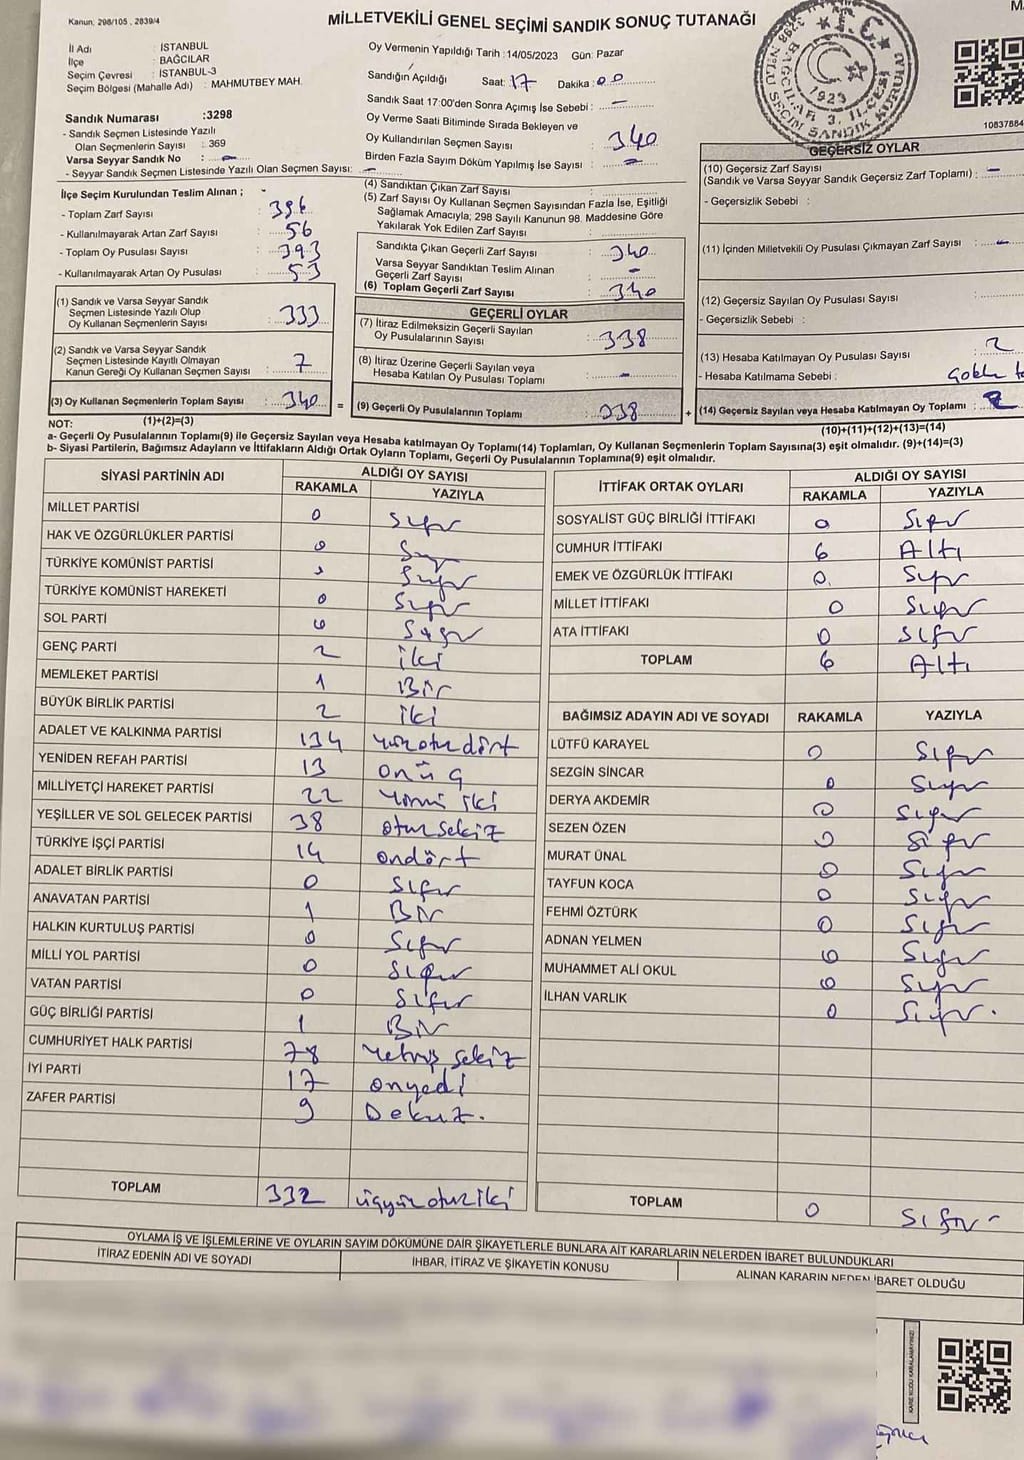 Kanun, 298/105 , 2839/4
MİLLETVEKİLİ GENEL SEÇİMİ SANDIK SONUÇ TUTANAĞI
İl Adı : İSTANBUL
İlçe : BAĞCILAR
Seçim Çevresi : İSTANBUL-3
Seçim Bölgesi (Mahalle Adı) : MAHMUTBEY MAH.
Sandık Numarası :3298
- Sandık Seçmen Listesinde Yazılı
Olan Seçmenlerin Sayısı : 369
Varsa Seyyar Sandık No : -
- Seyyar Sandık Seçmen Listesinde Yazılı Olan Seçmen Sayısı: -
Oy Vermenin Yapıldığı Tarih :14/05/2023 Gün: Pazar
Sandığın Açıldığı Saat: 17 Dakika : 00
Sandık Saat 17:00'den Sonra Açımış İse Sebebi : -
Oy Verme Saati Bitiminde Sırada Bekleyen ve
Oy Kullandırılan Seçmen Sayısı : 340
Birden Fazla Sayım Döküm Yapılmış İse Sayısı : -
T.C.
1923
10837884
İlçe Seçim Kurulundan Teslim Alınan ; -
- Toplam Zarf Sayısı : 396
- Kullanılmayarak Artan Zarf Sayısı : 56
- Toplam Oy Pusulası Sayısı : 393
- Kullanılmayarak Artan Oy Pusulası : 53
(1) Sandık ve Varsa Seyyar Sandık
Seçmen Listesinde Yazılı Olup
Oy Kullanan Seçmenlerin Sayısı : 333
(2) Sandık ve Varsa Seyyar Sandık
Seçmen Listesinde Kayıtlı Olmayan
Kanun Gereği Oy Kullanan Seçmen Sayısı : 7
(3) Oy Kullanan Seçmenlerin Toplam Sayısı : 340
(1)+(2)=(3)
(4) Sandıktan Çıkan Zarf Sayısı :
(5) Zarf Sayısı Oy Kullanan Seçmen Sayısından Fazla İse, Eşitliği
Sağlamak Amacıyla; 298 Sayılı Kanunun 98. Maddesine Göre
Yakılarak Yok Edilen Zarf Sayısı :
Sandıkta Çıkan Geçerli Zarf Sayısı : 340
Varsa Seyyar Sandıktan Teslim Alınan
Geçerli Zarf Sayısı : -
(6) Toplam Geçerli Zarf Sayısı : 340
GEÇERLİ OYLAR
(7) İtiraz Edilmeksizin Geçerli Sayılan
Oy Pusulalarının Sayısı : 338
(8) İtiraz Üzerine Geçerli Sayılan veya
Hesaba Katılan Oy Pusulası Toplamı : -
= (9) Geçerli Oy Pusulalarının Toplamı : 338
GEÇERSİZ OYLAR
(10) Geçersiz Zarf Sayısı
(Sandık ve Varsa Seyyar Sandık Geçersiz Zarf Toplamı) : -
- Geçersizlik Sebebi :
(11) İçinden Milletvekili Oy Pusulası Çıkmayan Zarf Sayısı : -
(12) Geçersiz Sayılan Oy Pusulası Sayısı :
- Geçersizlik Sebebi :
(13) Hesaba Katılmayan Oy Pusulası Sayısı : 2
- Hesaba Katılmama Sebebi :
+ (14) Geçersiz Sayılan veya Hesaba Katılmayan Oy Toplamı : 2
(10)+(11)+(12)+(13)=(14)
NOT:
a- Geçerli Oy Pusulalarının Toplamı(9) ile Geçersiz Sayılan veya Hesaba katılmayan Oy Toplamı(14) Toplamları, Oy Kullanan Seçmenlerin Toplam Sayısına(3) eşit olmalıdır. (9)+(14)=(3)
b- Siyasi Partilerin, Bağımsız Adayların ve İttifakların Aldığı Ortak Oyların Toplamı, Geçerli Oy Pusulalarının Toplamına(9) eşit olmalıdır.
SİYASİ PARTİNİN ADI ALDIĞI OY SAYISI
RAKAMLA YAZIYLA
MİLLET PARTİSİ 0 Sıfır
HAK VE ÖZGÜRLÜKLER PARTİSİ 0 Sıfır
TÜRKİYE KOMÜNİST PARTİSİ Sıfır
TÜRKİYE KOMÜNİST HAREKETİ 0 Sıfır
SOL PARTİ 0 Sıfır
GENÇ PARTİ 2 iki
MEMLEKET PARTİSİ 1 Bir
BÜYÜK BİRLİK PARTİSİ 2 iki
ADALET VE KALKINMA PARTİSİ 134 yüzotuzdört
YENİDEN REFAH PARTİSİ 13 onüç
MİLLİYETÇİ HAREKET PARTİSİ 22 Yirmi iki
YEŞİLLER VE SOL GELECEK PARTİSİ 38 otuz sekiz
TÜRKİYE İŞÇİ PARTİSİ 14 ondört
ADALET BİRLİK PARTİSİ 0 Sıfır
ANAVATAN PARTİSİ 1 Bir
HALKIN KURTULUŞ PARTİSİ 0 Sıfır
MİLLİ YOL PARTİSİ 0 Sıfır
VATAN PARTİSİ 0 Sıfır
GÜÇ BİRLİĞİ PARTİSİ 1 Bir
CUMHURİYET HALK PARTİSİ 78 Yetmiş sekiz
İYİ PARTİ 17 onyedi
ZAFER PARTİSİ 9 Dokuz.
TOPLAM 332 üçyüz otuz iki
İTTİFAK ORTAK OYLARI ALDIĞI OY SAYISI
RAKAMLA YAZIYLA
SOSYALİST GÜÇ BİRLİĞİ İTTİFAKI 0 Sıfır
CUMHUR İTTİFAKI 6 Altı
EMEK VE ÖZGÜRLÜK İTTİFAKI 0 Sıfır
MİLLET İTTİFAKI 0 Sıfır
ATA İTTİFAKI 0 Sıfır
TOPLAM 6 Altı
BAĞIMSIZ ADAYIN ADI VE SOYADI RAKAMLA YAZIYLA
LÜTFÜ KARAYEL 0 Sıfır
SEZGİN SİNCAR 0 Sıfır
DERYA AKDEMİR 0 Sıfır
SEZEN ÖZEN 0 Sıfır
MURAT ÜNAL 0 Sıfır
TAYFUN KOCA 0 Sıfır
FEHMİ ÖZTÜRK 0 Sıfır
ADNAN YELMEN 0 Sıfır
MUHAMMET ALİ OKUL 0 Sıfır
İLHAN VARLIK 0 Sıfır.
TOPLAM 0 Sıfır
OYLAMA İŞ VE İŞLEMLERİNE VE OYLARIN SAYIM DÖKÜMÜNE DAİR ŞİKAYETLERLE BUNLARA AİT KARARLARIN NELERDEN İBARET BULUNDUKLARI
İTİRAZ EDENİN ADI VE SOYADI İHBAR, İTİRAZ VE ŞİKAYETİN KONUSU ALINAN KARARIN NEDEN İBARET OLDUĞU
KAREKODU KARALAMAYINIZ!